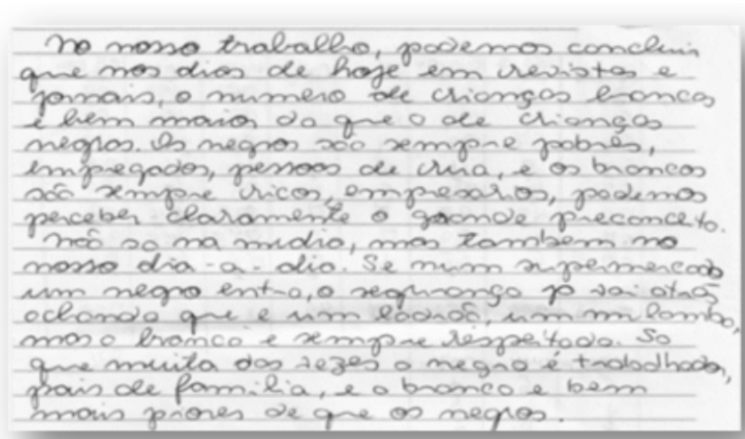 No nosso trabalho, podemos concluir
que nos dias de hoje em revistas e
jornais, o numero de crianças brancas
é bem maior do que o de crianças
negros. Os negros são sempre pobres,
empregados, pessoas de rua, e os brancos
são sempre ricos, empresarios, podemos
perceber claramente o grande preconceito.
Não so na midia, mas tambem no
nosso dia-a-dia. Se num supermercado
um negro entra, o segurança ja vai atrás
achando que e um ladrão, um
mas o branco é sempre respeitado. So
que muita das vezes o negro é trabalhador,
pais de familia, e o branco e bem
mais piores de que os negros.